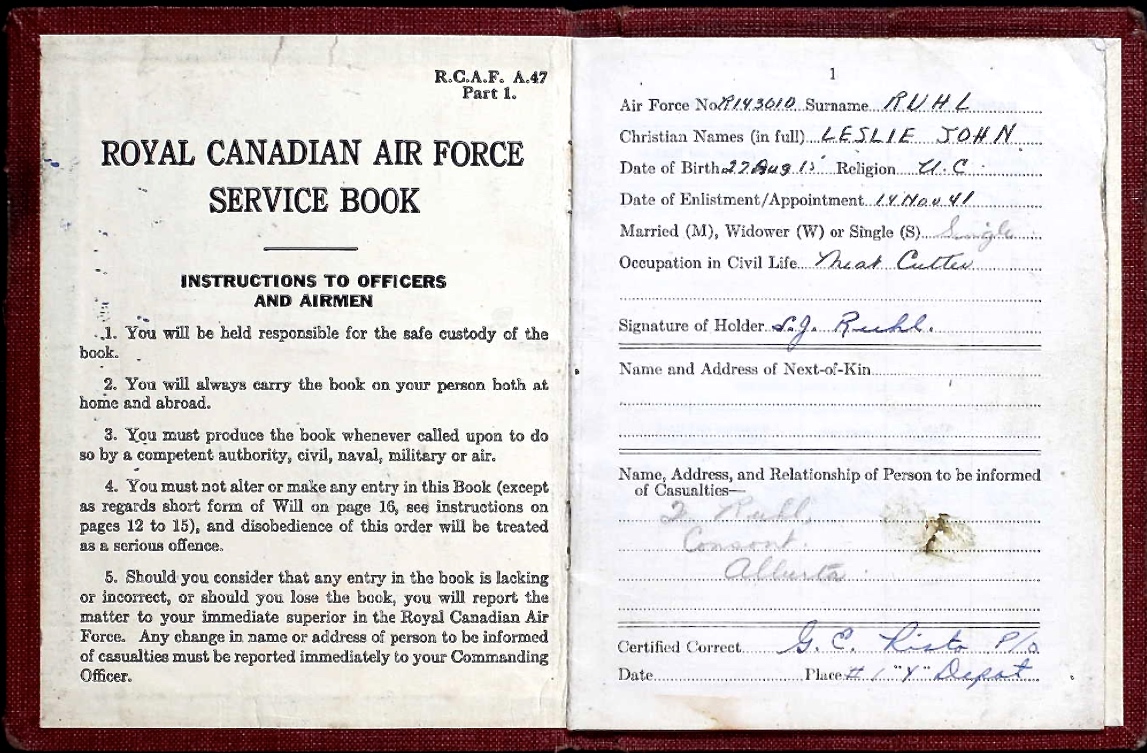 R.C.A.F. A.47
Part 1.
ROYAL CANADIAN AIR FORCE
SERVICE BOOK
INSTRUCTIONS TO OFFICERS
AND AIRMEN
1. You will be held responsible for the safe custody of the
book.
2. You will always carry the book on your person both at
home and abroad.
3. You must produce the book whenever called upon to do
so by a competent authority, civil, naval, military or air.
4. You must not alter or make any entry in this Book (except
as regards short form of Will on page 16, see instructions on
pages 12 to 15), and disobedience of this order will be treated
as a serious offence.
5. Should you consider that any entry in the book is lacking
or incorrect, or should you lose the book, you will report the
matter to your immediate superior in the Royal Canadian Air
Force. Any change in name or address of person to be informed
of casualties must be reported immediately to your Commanding
Officer.
1
Air Force No. R143010 Surname RUHL
Christian Names (in full) LESLIE JOHN
Date of Birth 27 Aug Religion U.C.
Date of Enlistment/Appointment 14 Nov 41
Married (M), Widower (W) or Single (S) Single
Occupation in Civil Life Meat Cutter
Signature of Holder L.J. Ruhl.
Name and Address of Next-of-Kin
Name, Address, and Relationship of Person to be informed
of Casualties—
Ruhl,
Consort.
Alberta
Certified Correct G. C. P/O
Date Place # 1 "Y" Depot